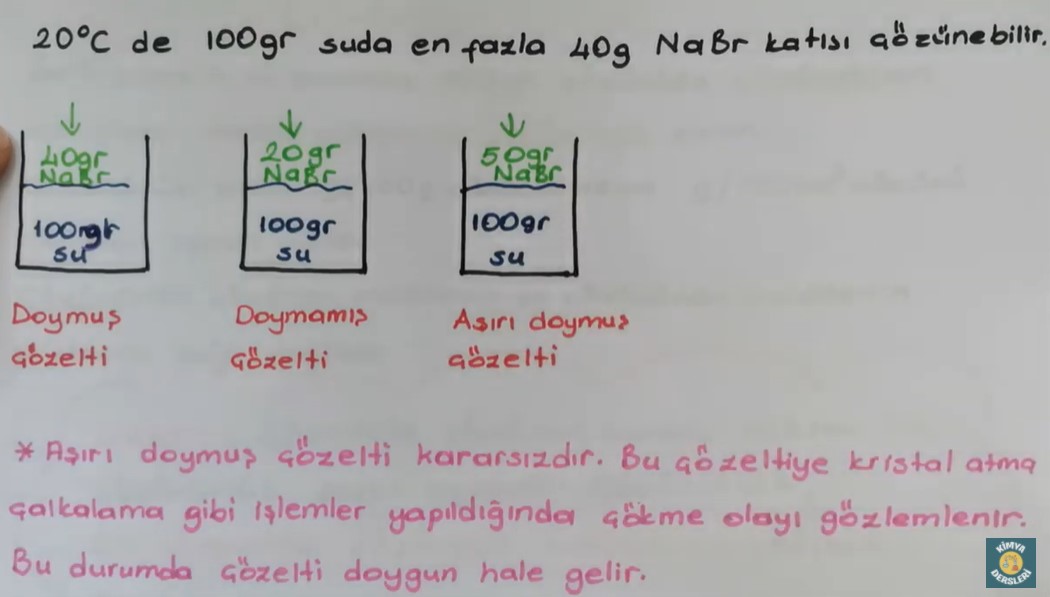 20°C de 100gr suda en fazla 40g NaBr katısı çözünebilir.
40gr
NaBr
100gr
su
20gr
NaBr
100gr
su
50gr
NaBr
100gr
su
Doymuş
çözelti
Doymamış
çözelti
Aşırı doymuş
çözelti
* Aşırı doymuş çözelti kararsızdır. Bu çözeltiye kristal atma
çalkalama gibi işlemler yapıldığında çökme olayı gözlemlenir.
Bu durumda çözelti doygun hale gelir.
KİMYA
DERSLERİ